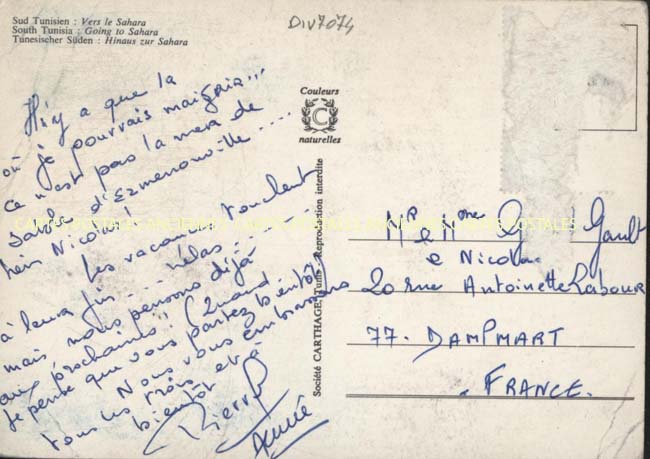 Sud Tunisien : Vers le Sahara
South Tunisia : Going to Sahara
Tunesischer Süden : Hinaus zur Sahara
DIV7074
Il n'y a que là
où je pourrais maigrir...
ce n'est pas la mer de
sable d'Ermenonville....
hein Nicolas!
Les vacances touchent
à leur fin... hélas -
mais nous pensons déjà
aux prochaines! (Quand
je pense que vous partez bientôt)
Nous vous embrassons
tous les trois et à
bientôt
Pierre
Annie
Couleurs
C
naturelles
Société CARTHAGE, Tunis - Reproduction interdite
Mr et Mme G Gault
e Nicolas
20 rue Antoinette Labour
77. DAMPMART
FRANCE.